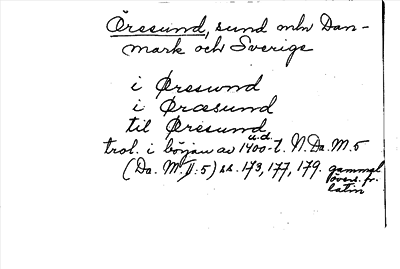 Öresund, sund mln Dan-
mark och Sverige
i Øresund
i Oræsund
til Øresund
u.d.
trol. i början av 1400-t. N.Da.M.5
(Da. M. II:5) ss. 173, 177, 179. gammal
övers. fr.
latin